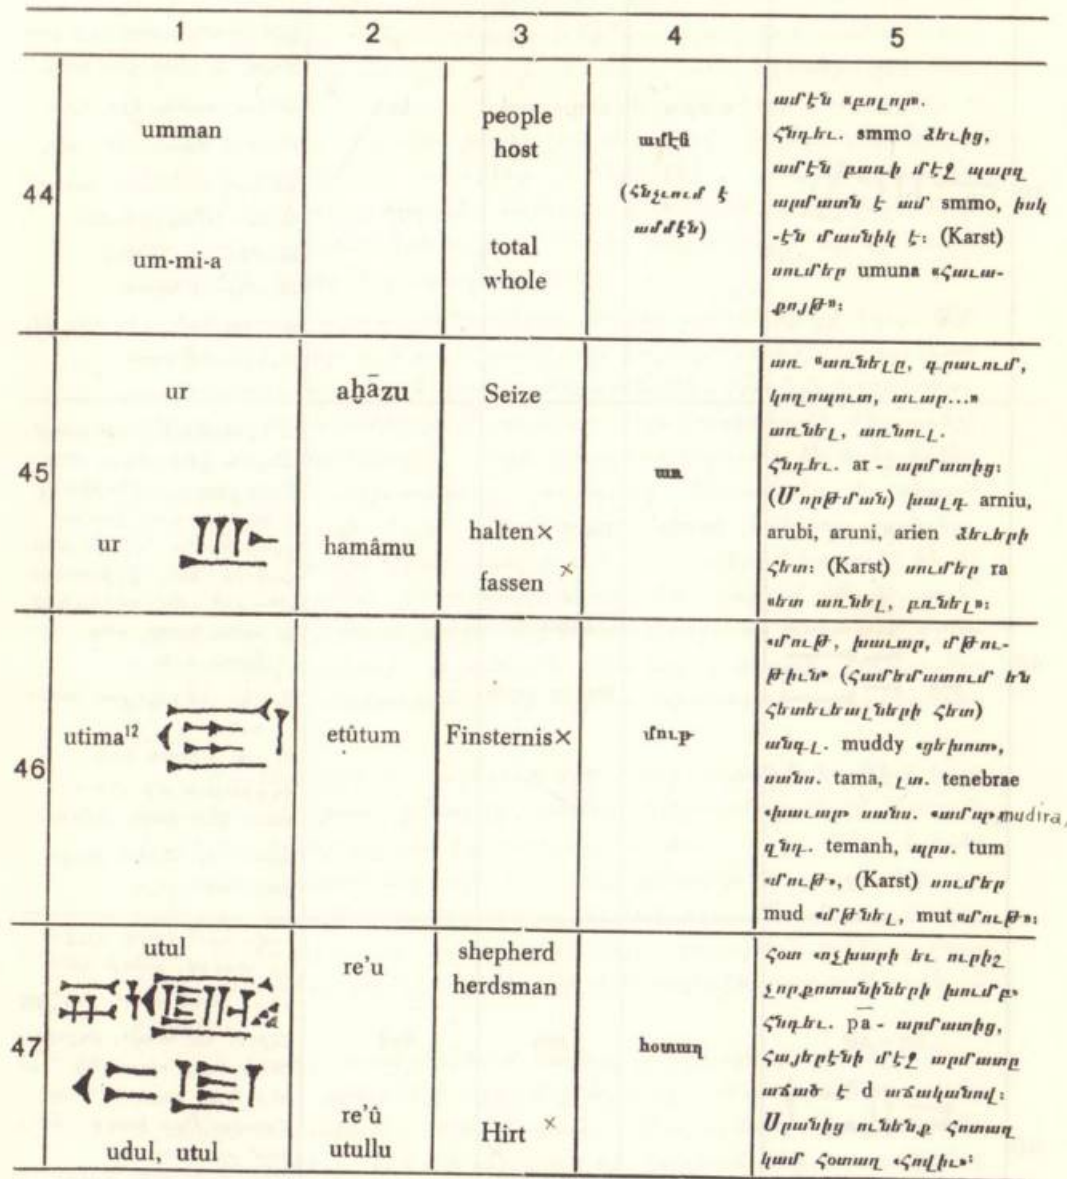 1 2 3 4 5
44
umman
um-mi-a
people
host
total
whole
ամէն
(հնչւում է
ամմէն)
ամէն «բոլոր».
Հնդեւ. smmo ձեւից,
ամէն բառի մէջ պարզ
արմատն է ամ smmo, իսկ
-էն մասնիկ է: (Karst)
սումեր umuna «հաւա-
քոյթ»:
45
ur
ur
aḫāzu
hamâmu
Seize
halten×
fassen ×
առ
առ "առնելը, գրաւում,
կողոպուտ, աւար..."
առնել, առնուլ.
Հնդեւ. ar - արմատից:
(Մորթման) խալդ. arniu,
arubi, aruni, arien ձեւերի
հետ: (Karst) սումեր ra
«ետ առնել, բռնել»:
46
utima¹²
etûtum
Finsternis×
մութ
«մութ, խաւար, մթու-
թիւն» (Համեմատում են
հետեւեալների հետ)
անգլ. muddy «ցեխոտ»,
սանս. tama, լտ. tenebrae
«խաւար» սանս. «ամպ» mudira,
զնդ. temanh, պրս. tum
«մութ», (Karst) սումեր
mud «մթնել, mut «մութ»:
47
utul
udul, utul
re’u
re’û
utullu
shepherd
herdsman
Hirt ×
հօտաղ
Հօտ «ոչխարի եւ ուրիշ
չորքոտանիների խումբ»
Հնդեւ. pā - արմատից,
Հայերէնի մէջ արմատը
աճած է d աճականով:
Սրանից ունենք հոտաղ
կամ հօտաղ «հովիւ»: